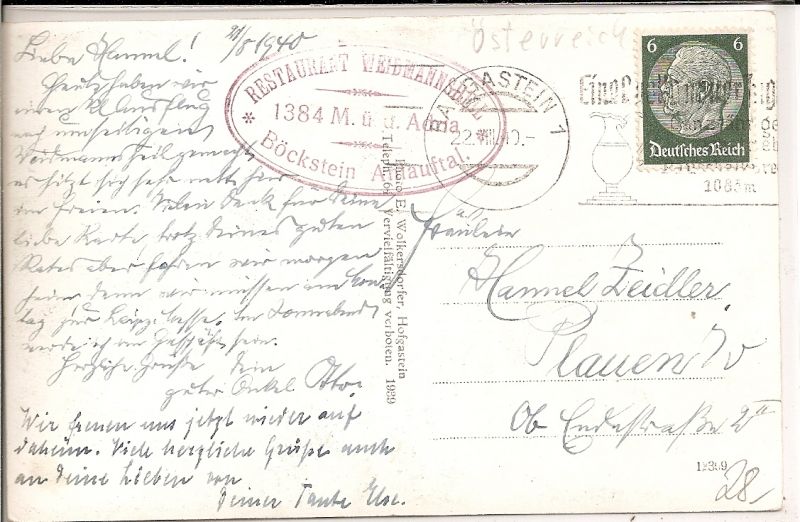 21/8 1940
Liebe Hannel!
Heute haben wir
einen kl. Ausflug
nach
Weidmannsheil gemacht,
es sitzt sich sehr nett hier
im Freien. Vielen Dank für Deine
liebe Karte, trotz Deines guten
Rates aber fahren wir morgen
heim denn wir müssen am
tag zur Sonnabend
werde ich im Geschäft sein.
Herzliche Grüße Dein
guter Onkel Otto.
Wir freuen uns jetzt wieder auf
daheim. Viele herzliche Grüße auch
an deine Lieben von
Deiner Tante Else.
RESTAURANT WEIDMANNSHEIL
1384 M. ü. d. Adria
Böckstein Anlauftal.
Photo E. Wolkersdorfer, Hofgastein
Teleph. 64 Vervielfältigung verboten. 1939
Österreich
BADGASTEIN 1
22.VIII.40.-
1083m
6 6
Deutsches Reich
Fräulein
Hannel Zeidler,
Plauen i/V
Ob. Endestraße 2 II
12389
28